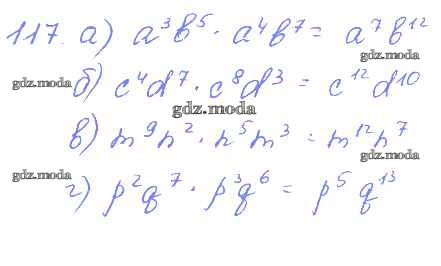 117. а) a³b⁵ · a⁴b⁷ = a⁷b¹²
gdz.moda
gdz.moda
б) c⁴d⁷ · c⁸d³ = c¹²d¹⁰
gdz.moda
в) m⁹n² · n⁵m³ = m¹²n⁷
gdz.moda
gdz.moda
г) p²q⁷ · p³q⁶ = p⁵q¹³